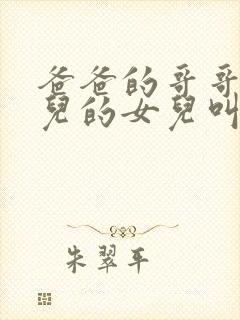 爸爸的哥哥
兒的女兒叫
朱翠平